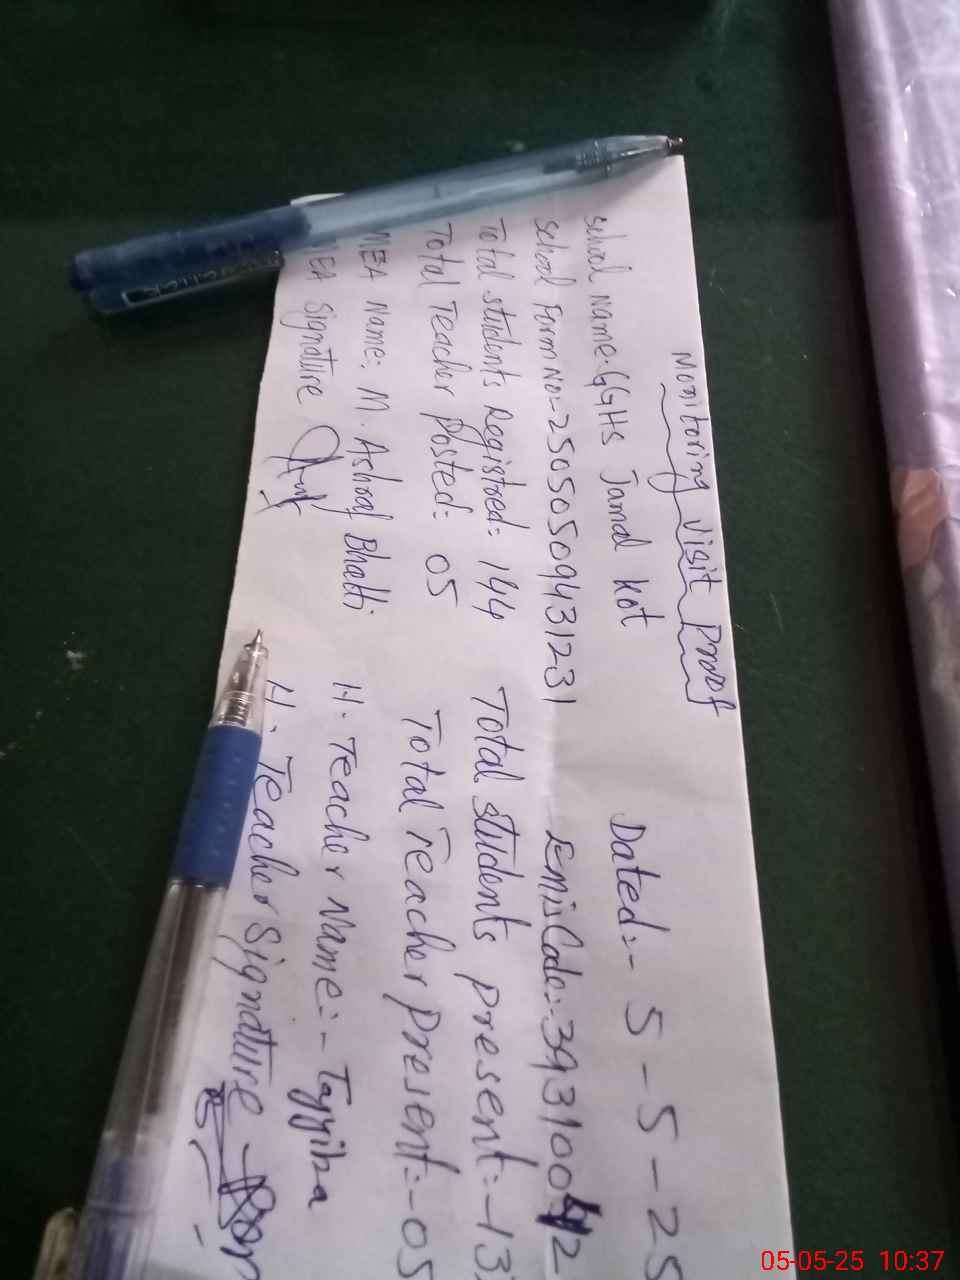 Monitoring Visit Proof
School Name: GGHS Jamal Kot Dated:- 5-5-25
School Form No:- 25050509431231 Emis Code:- 39310042
Total students Registred: 144 Total students present:-13
Total Teacher Posted: 05 Total Teacher Present:-05
MEA Name: M. Ashraf Bhatti H. Teacher Name:- Tayyiba
MEA Signature H. Teacher Signature
05-05-25 10:37